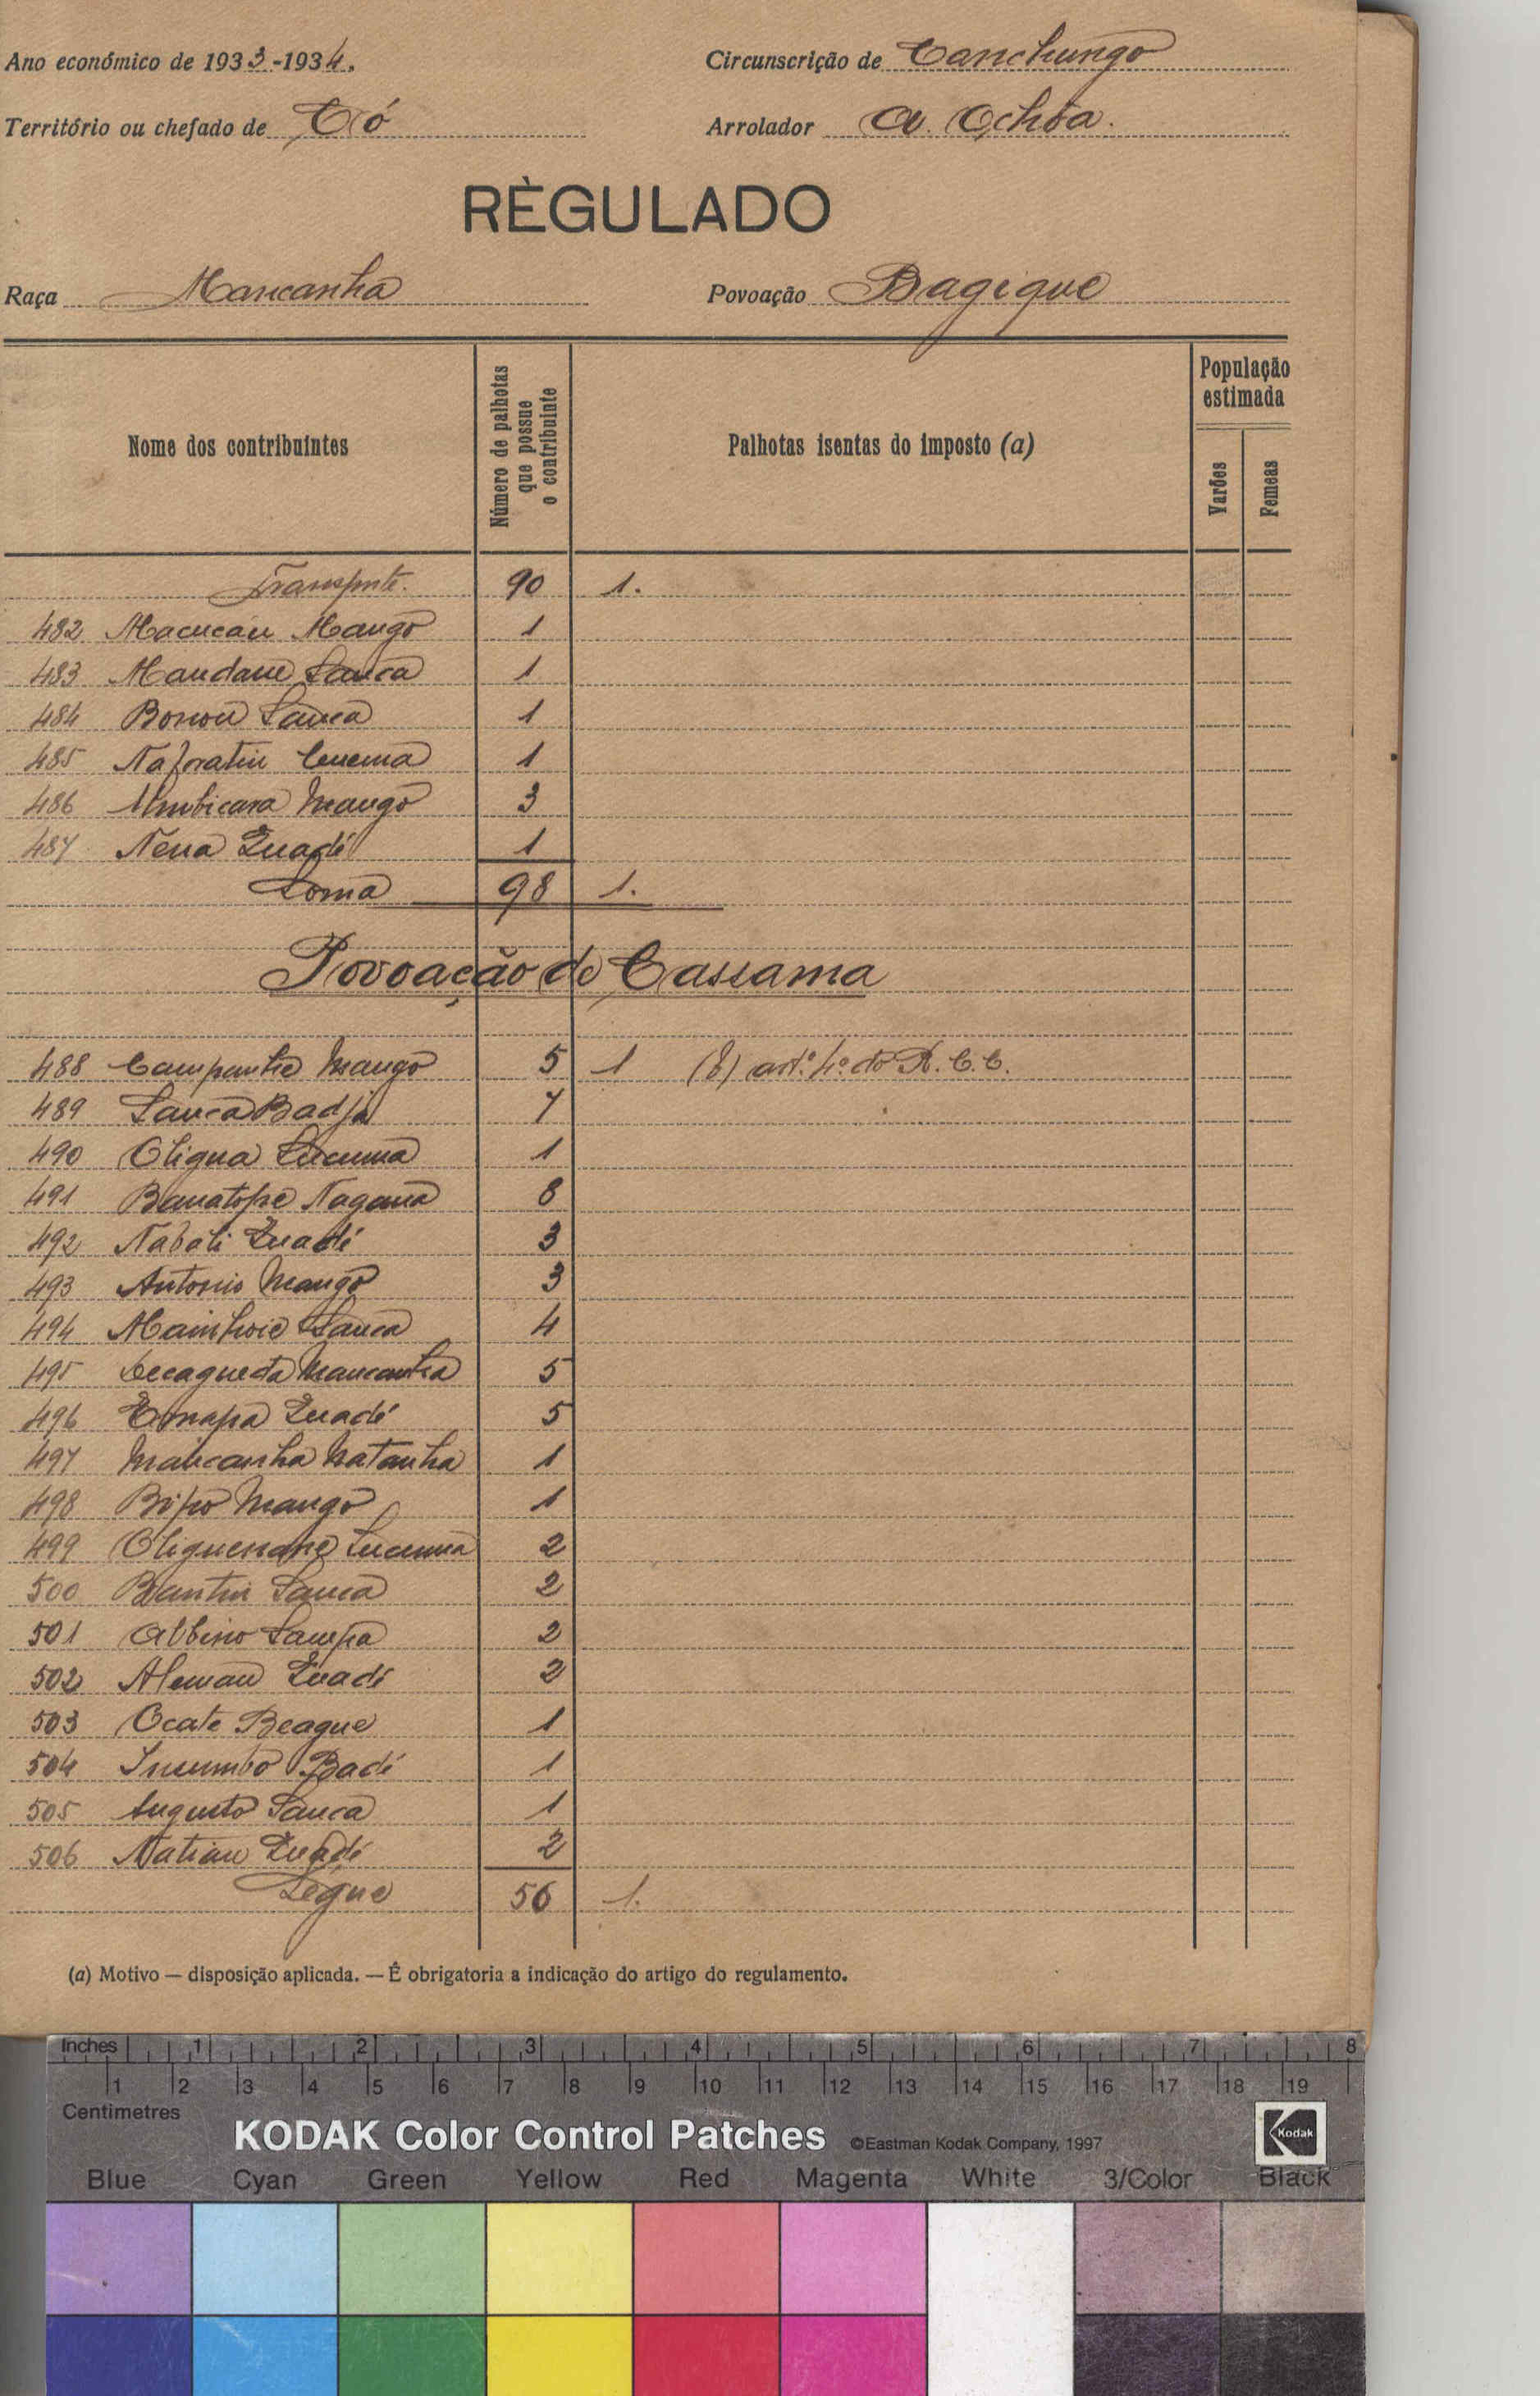 Ano económico de 1933-1934.
Circunscrição de Canchungo
Território ou chefado de Có
Arrolador A. Ochôa.
RÈGULADO
Raça Mancanha
Povoação Bagique
Nome dos contribuintes
Número de palhotas que possue o contribuinte
Palhotas isentas do imposto (a)
População estimada
Varões
Femeas
Transporte. 90 1.
482 Macucau Mango 1
483 Mandane Sanca 1
484 Sanca 1
485 1
486 Mango 3
487 Nena Quadé 1
Soma 98 1.
Povoação de Cassama
488 Campanhe Mango 5 1 (8) art.º 4º do R. C. C.
489 Sanca Badja 7
490 Oligna Lucuma 1
491 Banatope Nagana 8
492 Nabali Quadé 3
493 Antonio Mango 3
494 Sanca 4
495 Mancanha 5
496 Quadé 5
497 Mancanha Natanha 1
498 Bipo Mango 1
499 Lucuma 2
500 Bantin Sanca 2
501 Albino Sampa 2
502 Aleman Quadé 2
503 Ocate Beague 1
504 Insumbo Badé 1
505 Augusto Sanca 1
506 Natiau Quadé 2
Segue 56 1.
(a) Motivo — disposição aplicada. — É obrigatoria a indicação do artigo do regulamento.
Inches 1 2 3 4 5 6 7 8
1 2 3 4 5 6 7 8 9 10 11 12 13 14 15 16 17 18 19
Centimetres
KODAK Color Control Patches ©Eastman Kodak Company, 1997 Kodak
Blue Cyan Green Yellow Red Magenta White 3/Color Black